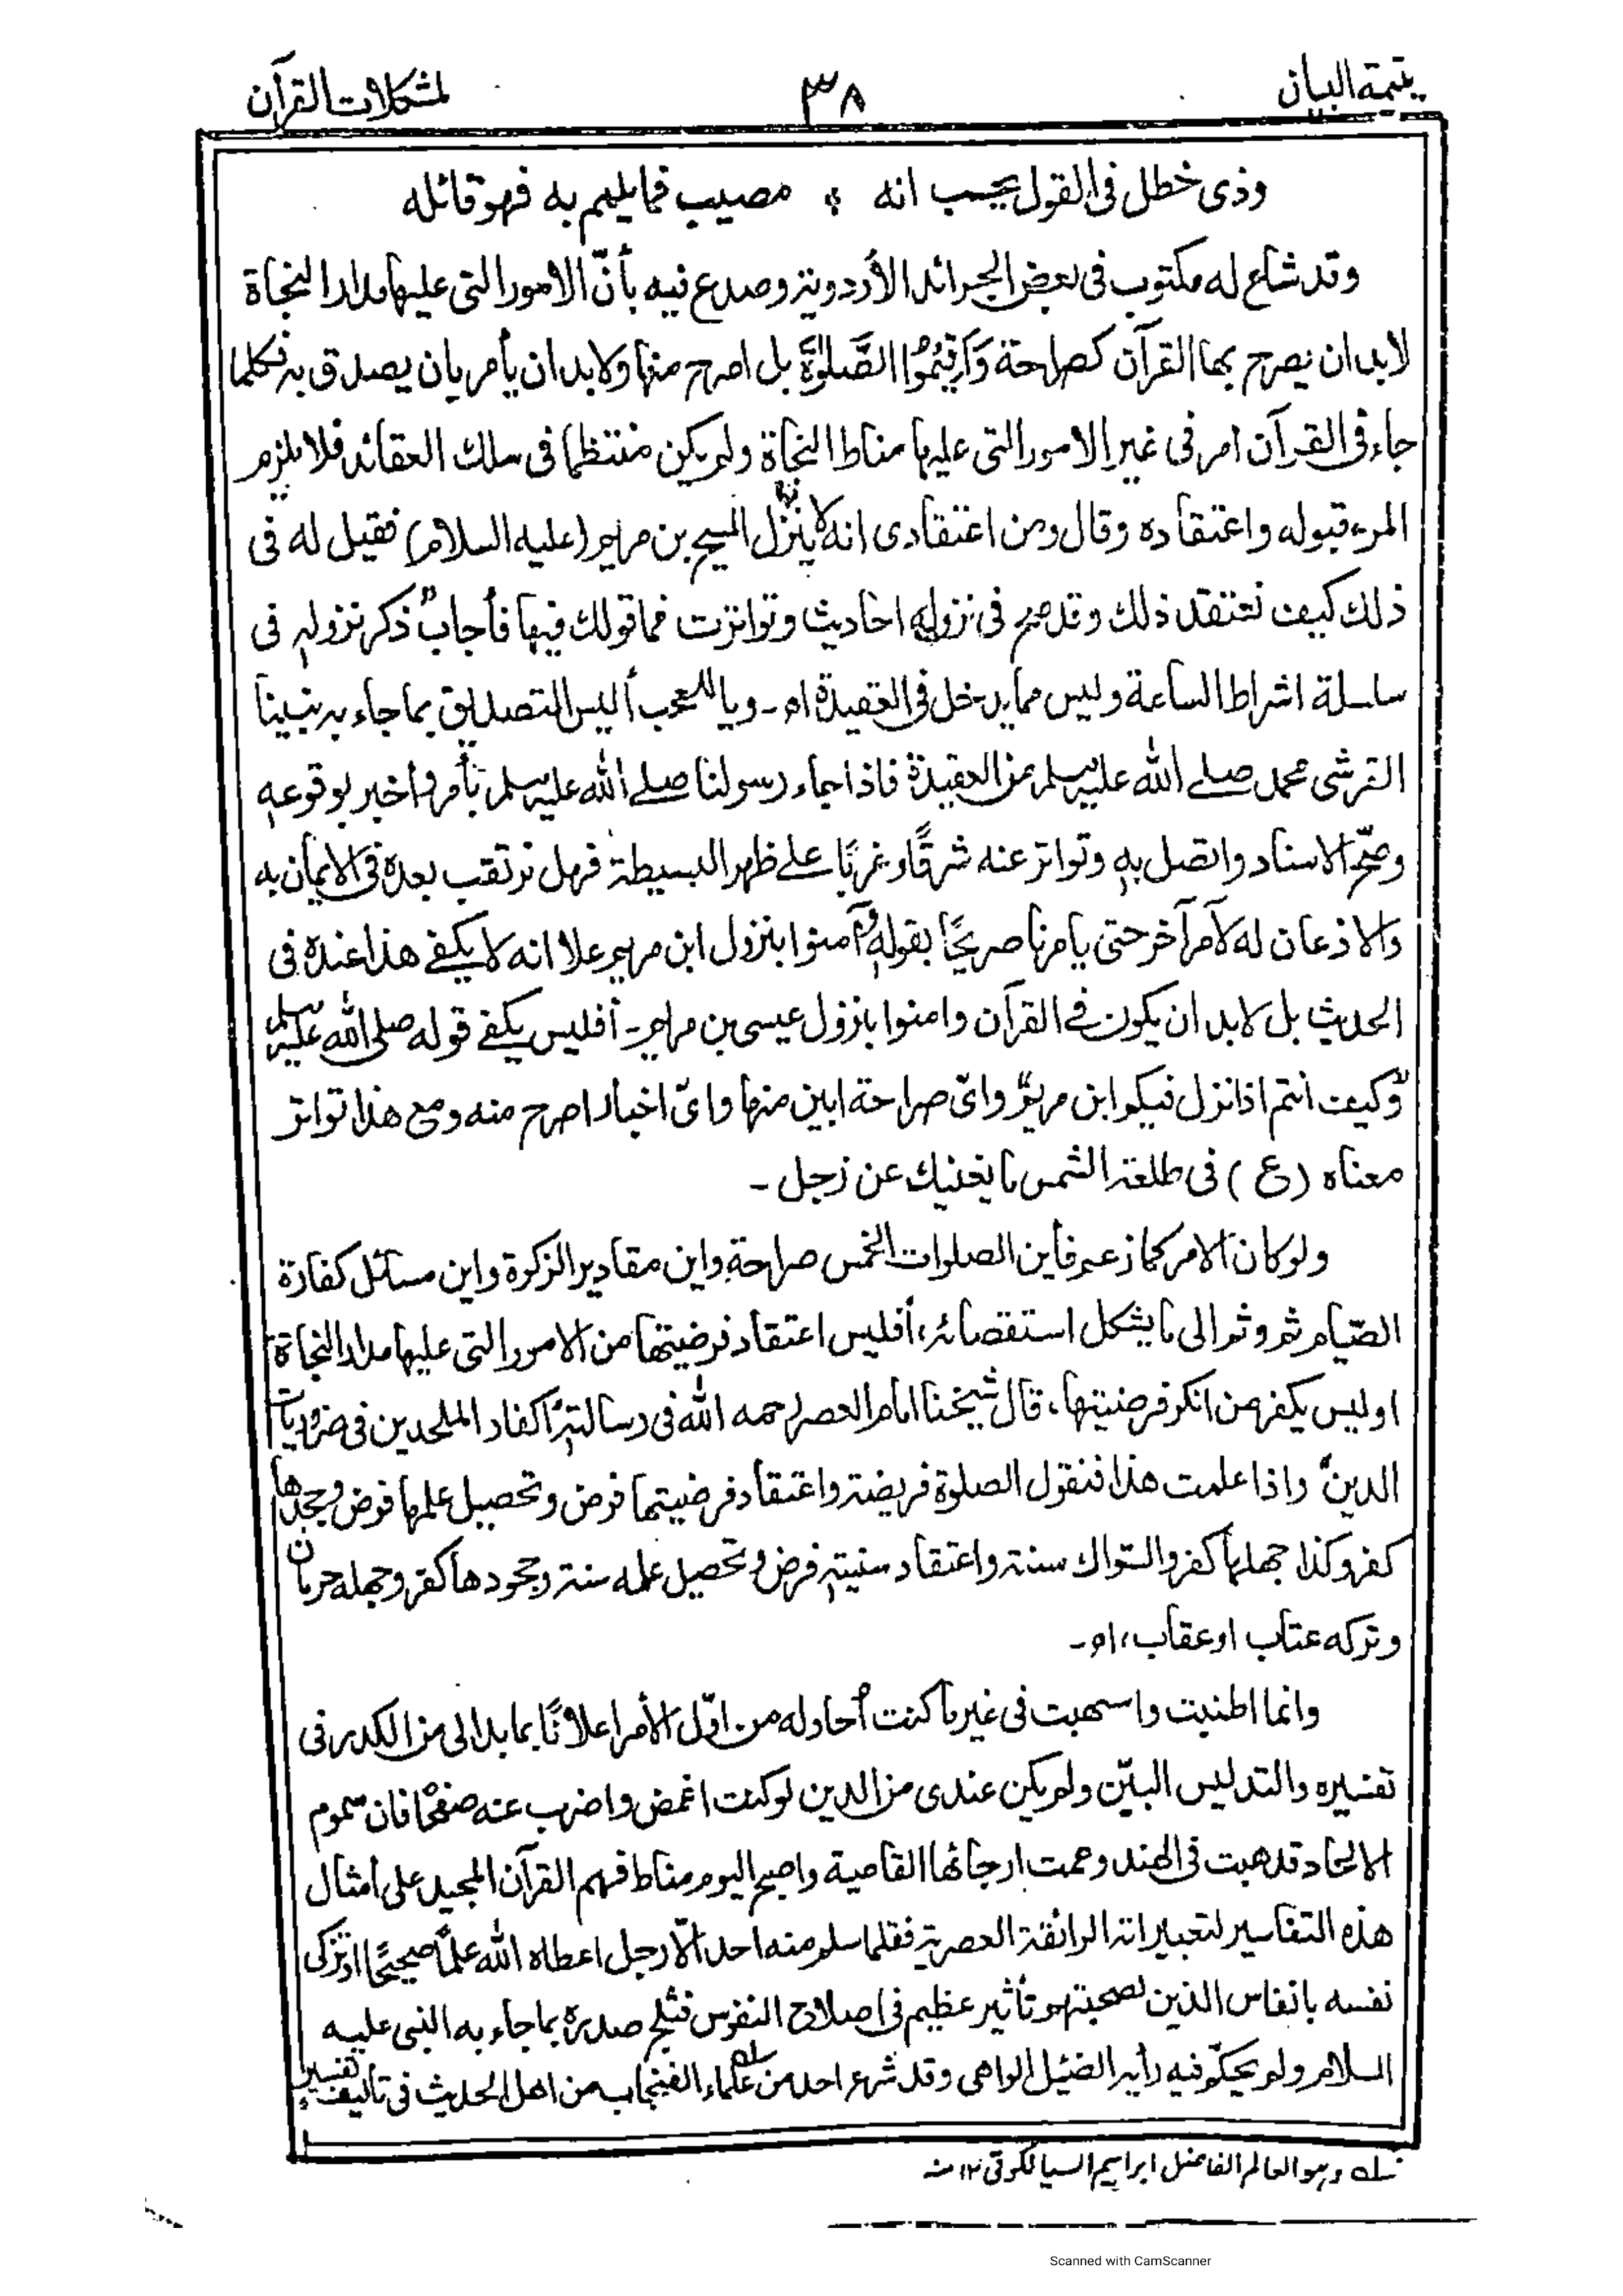 يتيمة البيان ٣٨ لمشكلات القرآن
وذى خطل فى القول يحسب انه * مصيب فما يلهم به فهو قائله
وقد شاع له مكتوب فى بعض الجرائد الأردوية وصدع فيه بأنّ الامور التى عليها مدار النجاة
لابد ان يصرح بها القرآن كصراحة وَاَقِيْمُوا الصَّلٰوةَ بل اصرح منها ولابد ان يأمر بان يصدق به فكلما
جاء فى القرآن امر فى غير الامور التى عليها مناط النجاة ولم يكن منتظما فى سلك العقائد فلا يلزم
المرء قبوله واعتقاده وقال ومن اعتقادى انه لا ينزل المسيح بن مريم (عليه السلام) فقيل له فى
ذلك كيف تعتقد ذلك وقد صح فى نزوله احاديث وتواترت فما قولك فيها فأجاب" ذكر نزوله فى
سلسلة اشراط الساعة وليس مما يدخل فى العقيدة اھ۔ ويا للعجب أليس التصديق بما جاء به نبينا
القرشى محمد صلے الله عليه وسلم من العقيدة فاذا جاء رسولنا صلے الله عليه وسلم بأمر وأخبر بوقوعه
وصحّ الاسناد واتصل به وتواتر عنه شرقًا وغربًا علے ظهر البسيطة فهل نرتقب بعده فى الايمان به
والاذعان له لآمر آخر حتى يامرنا صريحًا بقوله وآمنوا بنزول ابن مريم علا انه لا يكفے هذا عنده فى
الحديث بل لابد ان يكون فے القرآن وامنوا بنزول عيسى بن مريم۔ أفليس يكفے قوله صلى الله عليه وسلم
"وكيف انتم اذا نزل فيكم ابن مريم" واىّ صراحة ابين منها واىّ اخبار اصرح منه ومع هذا تواتر
معناه (ع) فى طلعة الشمس ما يغنيك عن زحل ۔
ولو كان الامر كما زعم فأين الصلوات الخمس صراحة واين مقادير الزكوة واين مسائل كفارة
الصّيام ثم وثم الى ما يشكل استقصائه، أفليس اعتقاد فرضيتها من الامور التى عليها مدار النجاة
اوليس يكفر من انكر فرضيتها، قال شيخنا امام العصر رحمه الله فى رسالته "اكفار الملحدين فى ضروريات
الدين" واذا علمت هذا فنقول الصلوة فريضة واعتقاد فرضيتها فرض وتحصيل علمها فرض وجحدها
كفر وكذا جهلها كفر والسّواك سنة واعتقاد سنيته فرض وتحصيل علمه سنة وجحودها كفر وجهله حرمان
وتركه عتاب او عقاب، اھ۔
وانما اطنبت واسهبت فى غير ما كنت أحاوله من اوّل الأمر اعلانًا بما بدا لى من الكدر فى
تفسيره والتدليس البيّن ولم يكن عندى من الدين لو كنت اغمض واضرب عنه صفحًا فان سموم
الالحاد قد هبت فى الهند وعمت ارجائها القاصية واصبح اليوم مناط فهم القرآن المجيد على أمثال
هذه التفاسير لتعبيراته الرائقة العصرية فقلما سلم منه احد الّا رجل اعطاه الله علمًا صحيحًا او تزكى
نفسه بانفاس الذين لصحبتهم تأثير عظيم فى اصلاح النفوس فثلج صدره بما جاء به النبى عليه
السلام ولم يحكّم فيه رأيه الضئيل الواهى وقد شرع احد من علماء الفنجاب من اهل الحديث فى تأليف تفسير
له وهو العالم الفاضل ابراهيم السيالكوتى ١٢ منه
Scanned with CamScanner